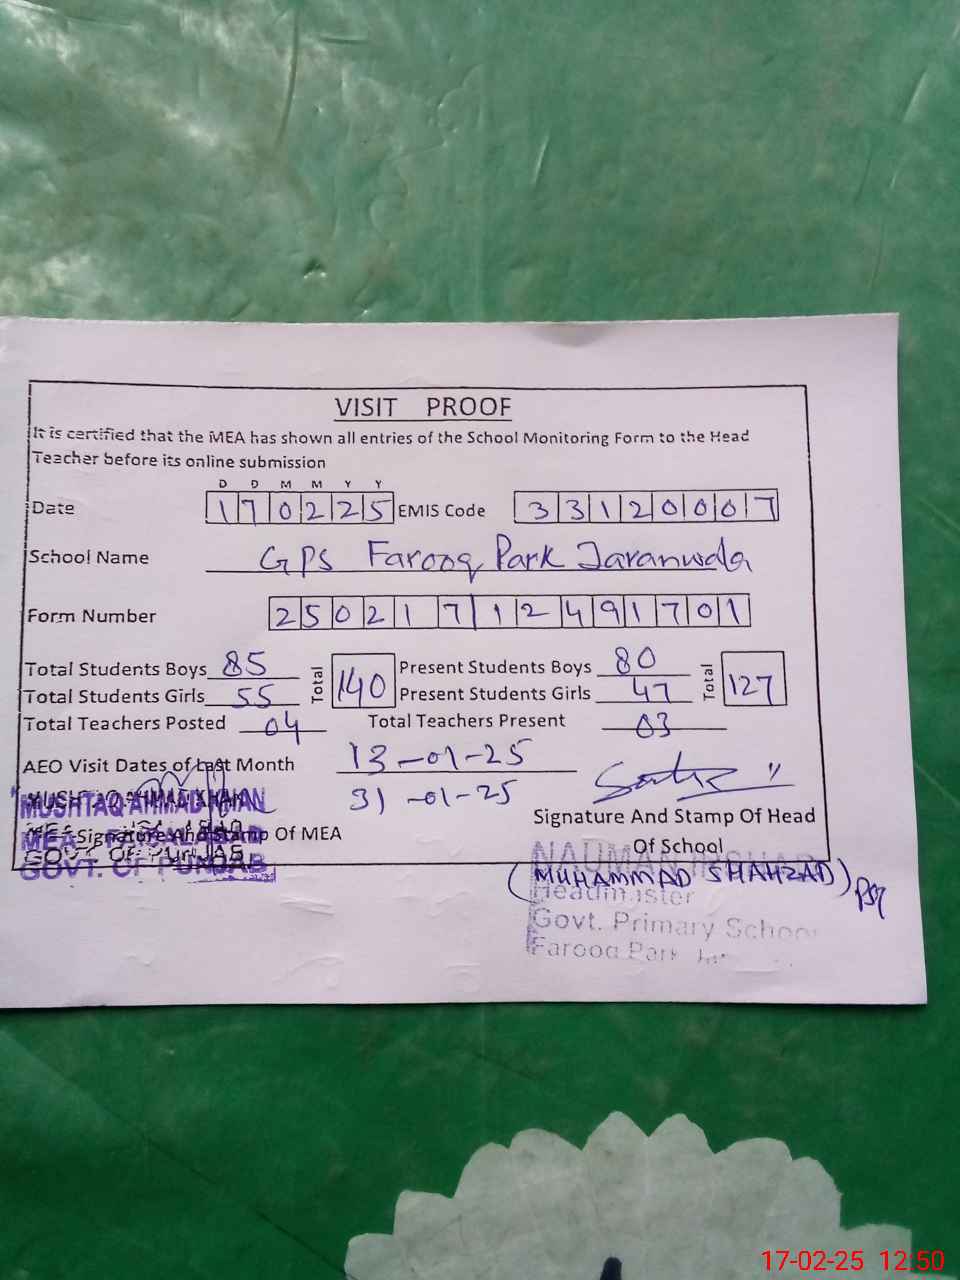 VISIT PROOF
It is certified that the MEA has shown all entries of the School Monitoring Form to the Head
Teacher before its online submission
D D M M Y Y
Date 170225 EMIS Code 33120007
School Name GPS Farooq Park Jaranwala
Form Number 25021712491701
Total Students Boys 85 Total 140 Present Students Boys 80 Total 127
Total Students Girls 55 Present Students Girls 47
Total Teachers Posted 04 Total Teachers Present 03
AEO Visit Dates of Last Month 13-01-25
31-01-25
MUSHTAQ AHMAD KHAN
MEA FAISALABAD
Signature And Stamp Of MEA
GOVT. OF PUNJAB
Signature And Stamp Of Head
Of School
NAUMAN
(MUHAMMAD SHAHZAD) PST
Headmaster
Govt. Primary School
Farooq Park
17-02-25 12:50